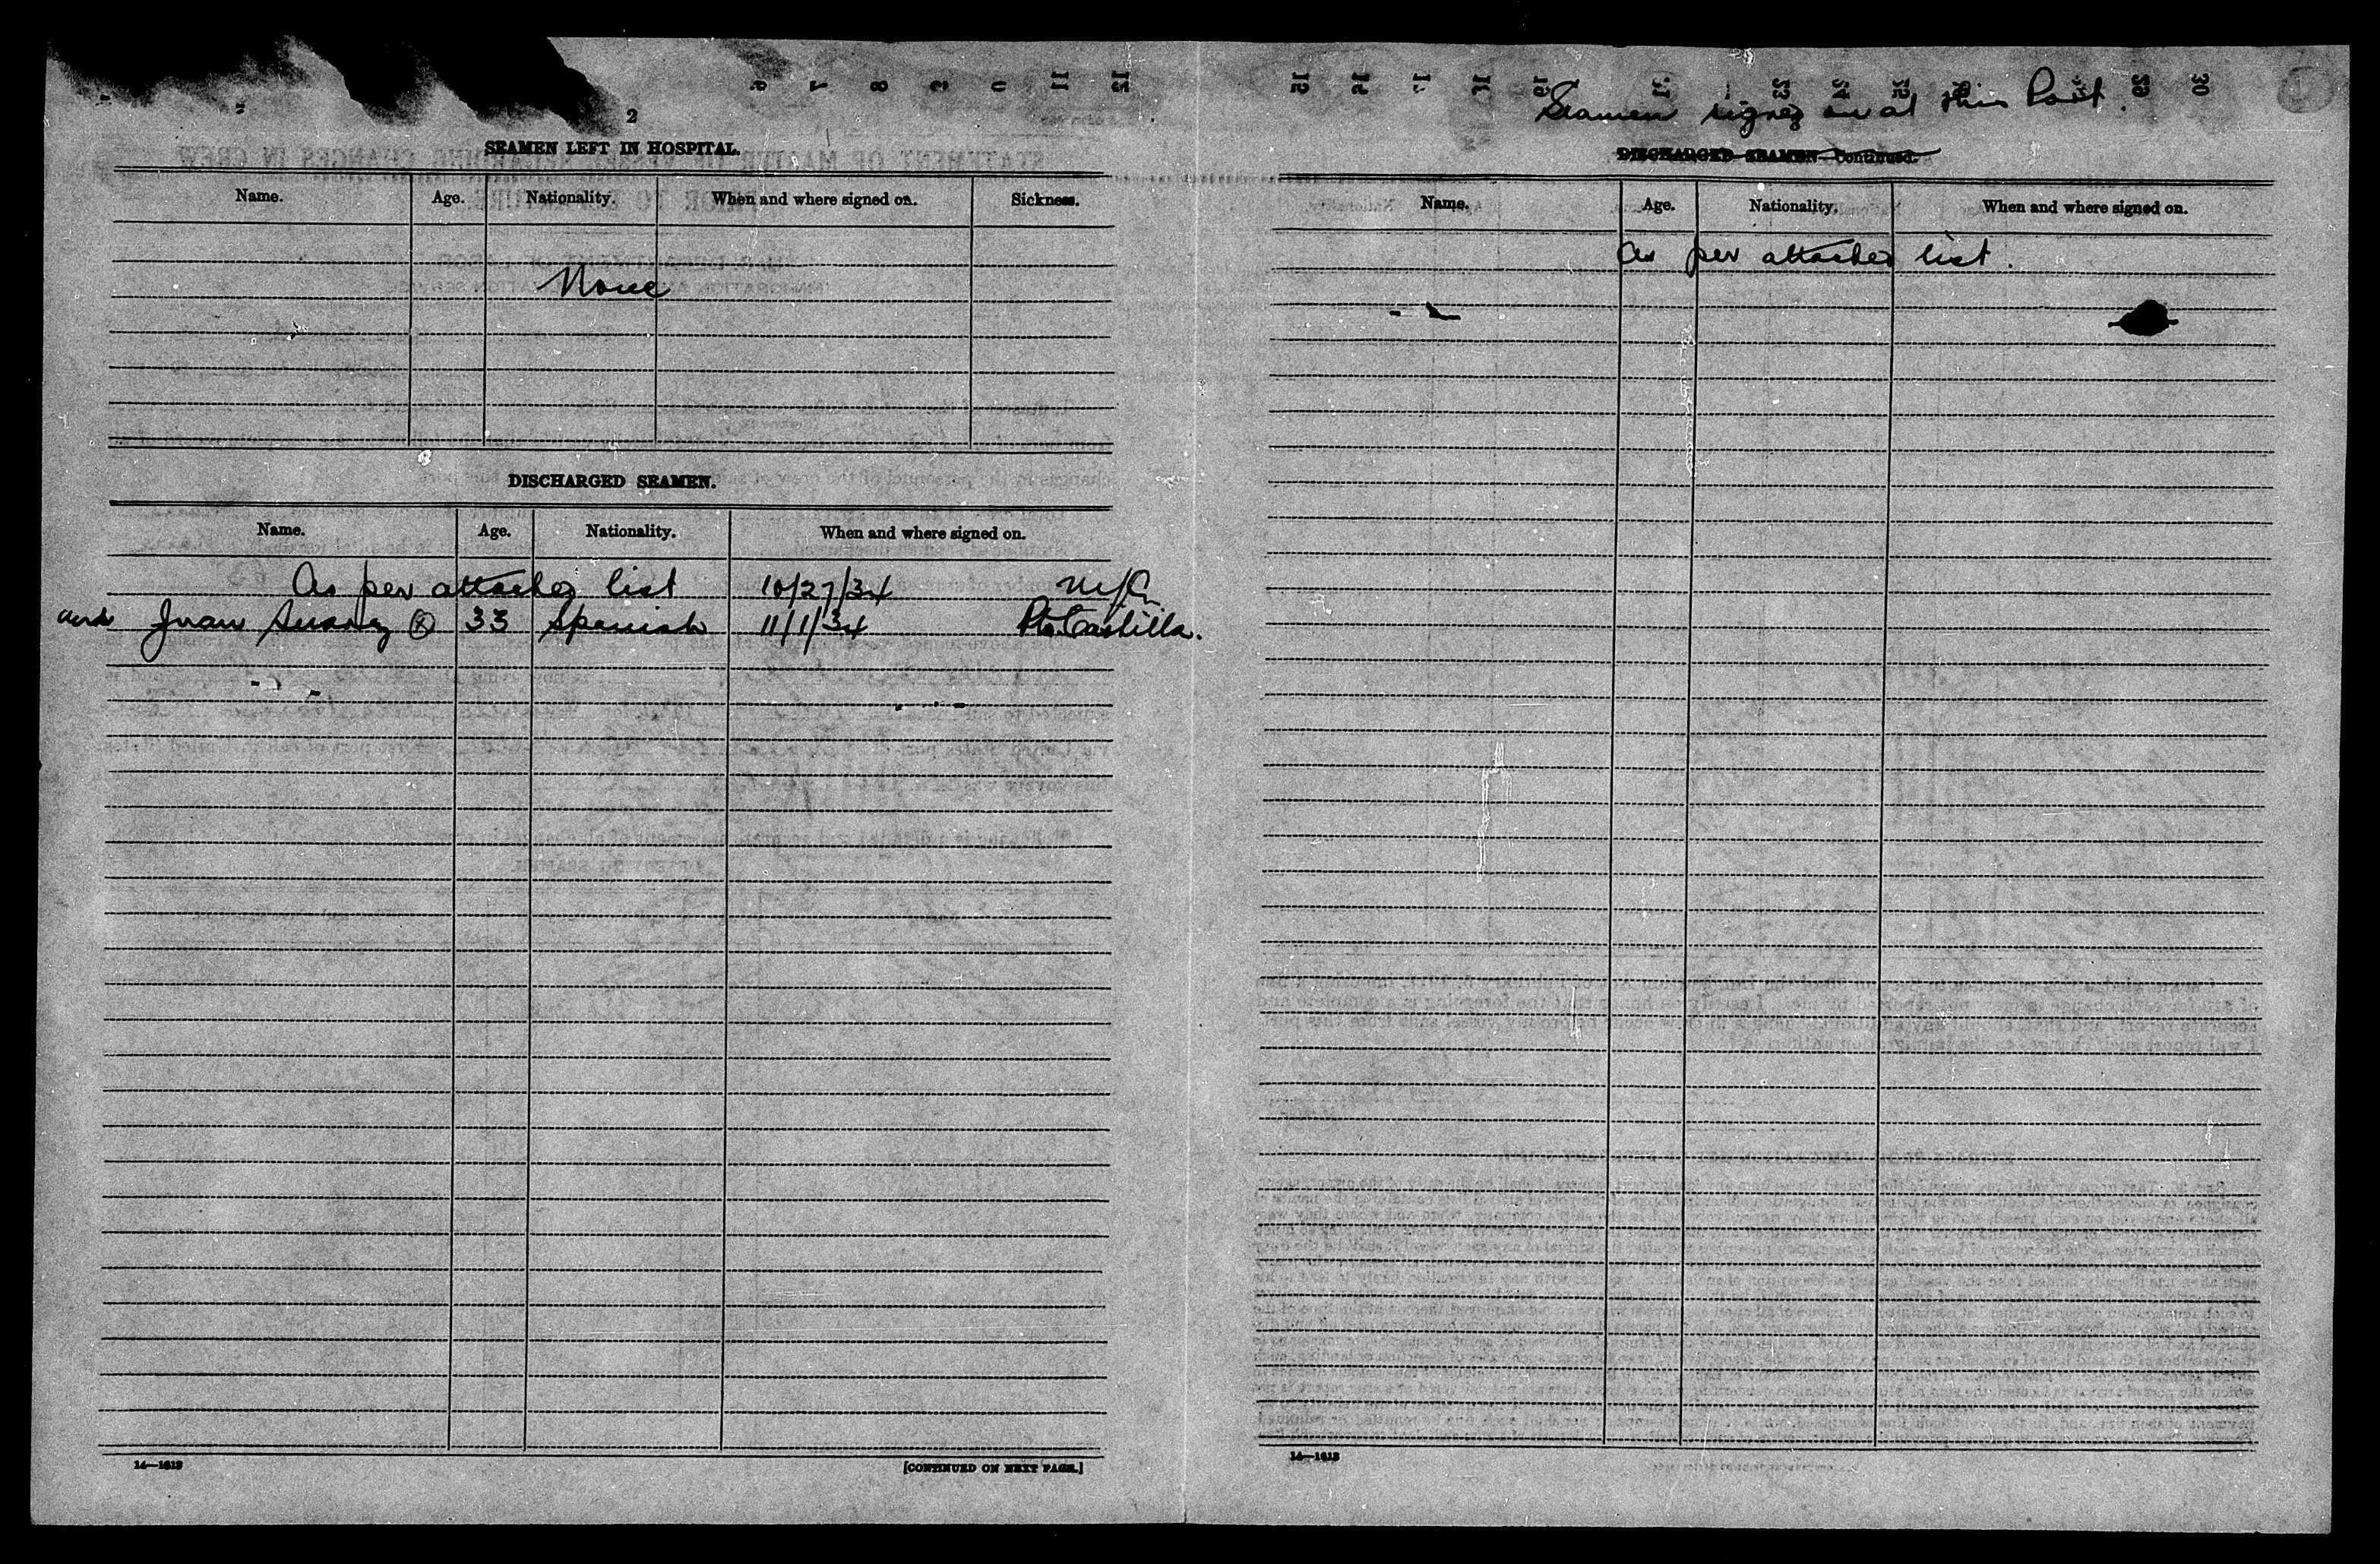 2
SEAMEN LEFT IN HOSPITAL.
Name. Age. Nationality. When and where signed on. Sickness.
None
DISCHARGED SEAMEN.
Name. Age. Nationality. When and where signed on.
As per attached list 10/27/34
and Juan Suarez 33 Spanish 11/1/34 Pto Castilla.
14—1613
[CONTINUED ON NEXT PAGE.]
Seamen signed on at this Port.
DISCHARGED SEAMEN—Continued.
Name. Age. Nationality. When and where signed on.
As per attached list.
14—1613